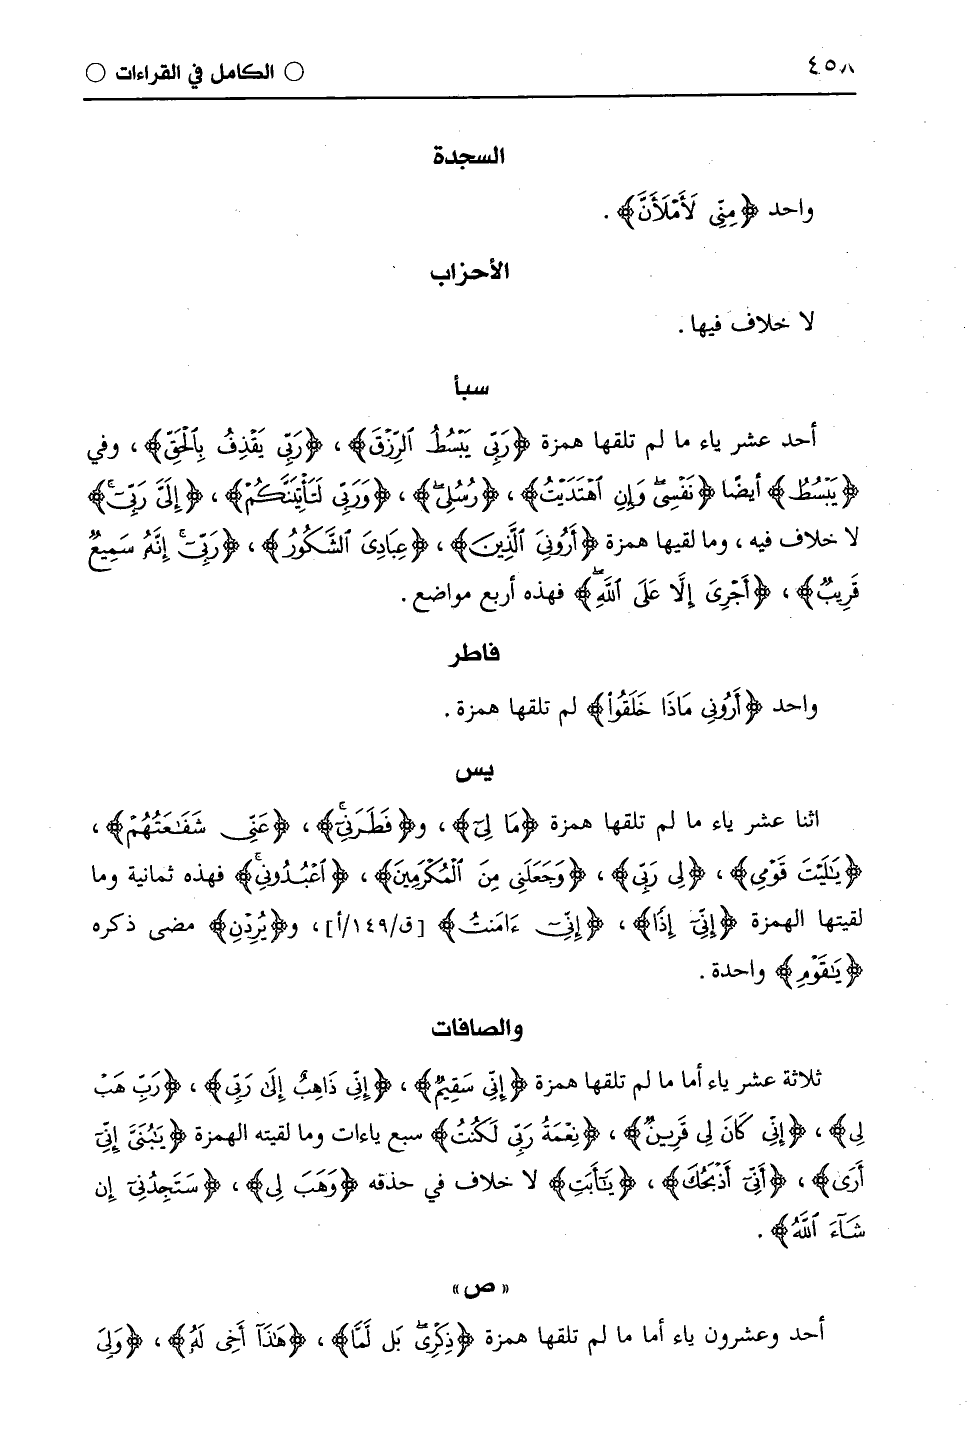 ٤٥٨ ○ الكامل في القراءات ○
السجدة
واحد ﴿مِنِّي لَأَمْلَأَنَّ﴾ .
الأحزاب
لا خلاف فيها .
سبأ
أحد عشر ياء ما لم تلقها همزة ﴿رَبِّي يَبْسُطُ الرِّزْقَ﴾ ، ﴿رَبِّي يَقْذِفُ بِالْحَقِّ﴾ ، وفي
﴿يَبْسُطُ﴾ أيضًا ﴿نَفْسِي وَإِنِ اهْتَدَيْتُ﴾ ، ﴿رُسُلِي﴾ ، ﴿وَرَبِّي لَتَأْتِيَنَّكُمْ﴾ ، ﴿إِلَيَّ رَبِّي﴾
لا خلاف فيه ، وما لقيها همزة ﴿أَرُونِيَ الَّذِينَ﴾ ، ﴿عِبَادِيَ الشَّكُورُ﴾ ، ﴿رَبِّي إِنَّهُ سَمِيعٌ
قَرِيبٌ﴾ ، ﴿أَجْرِيَ إِلَّا عَلَى اللَّهِ﴾ فهذه أربع مواضع .
فاطر
واحد ﴿أَرُونِي مَاذَا خَلَقُوا﴾ لم تلقها همزة .
يس
اثنا عشر ياء ما لم تلقها همزة ﴿مَا لِيَ﴾ ، و﴿فَطَرَنِي﴾ ، ﴿عَنِّي شَفَاعَتُهُمْ﴾ ،
﴿يَالَيْتَ قَوْمِي﴾ ، ﴿لِي رَبِّي﴾ ، ﴿وَجَعَلَنِي مِنَ الْمُكْرَمِينَ﴾ ، ﴿اعْبُدُونِي﴾ فهذه ثمانية وما
لقيتها الهمزة ﴿إِنِّي إِذًا﴾ ، ﴿إِنِّي ءَامَنتُ﴾ [ق/١٤٩/أ] ، و﴿يُرِدْنِ﴾ مضى ذكره
﴿يَاقَوْمِ﴾ واحدة .
والصافات
ثلاثة عشر ياء أما ما لم تلقها همزة ﴿إِنِّي سَقِيمٌ﴾ ، ﴿إِنِّي ذَاهِبٌ إِلَى رَبِّي﴾ ، ﴿رَبِّ هَبْ
لِي﴾ ، ﴿إِنِّي كَانَ لِي قَرِينٌ﴾ ، ﴿نِعْمَةُ رَبِّي لَكُنتُ﴾ سبع ياءات وما لقيته الهمزة ﴿يَابُنَيَّ إِنِّي
أَرَى﴾ ، ﴿أَنِّي أَذْبَحُكَ﴾ ، ﴿يَاأَبَتِ﴾ لا خلاف في حذفه ﴿وَهَبَ لِي﴾ ، ﴿سَتَجِدُنِي إِن
شَاءَ اللَّهُ﴾ .
« ص »
أحد وعشرون ياء أما ما لم تلقها همزة ﴿ذِكْرِي بَل لَّمَّا﴾ ، ﴿هَذَا أَخِي لَهُ﴾ ، ﴿وَلِيَ